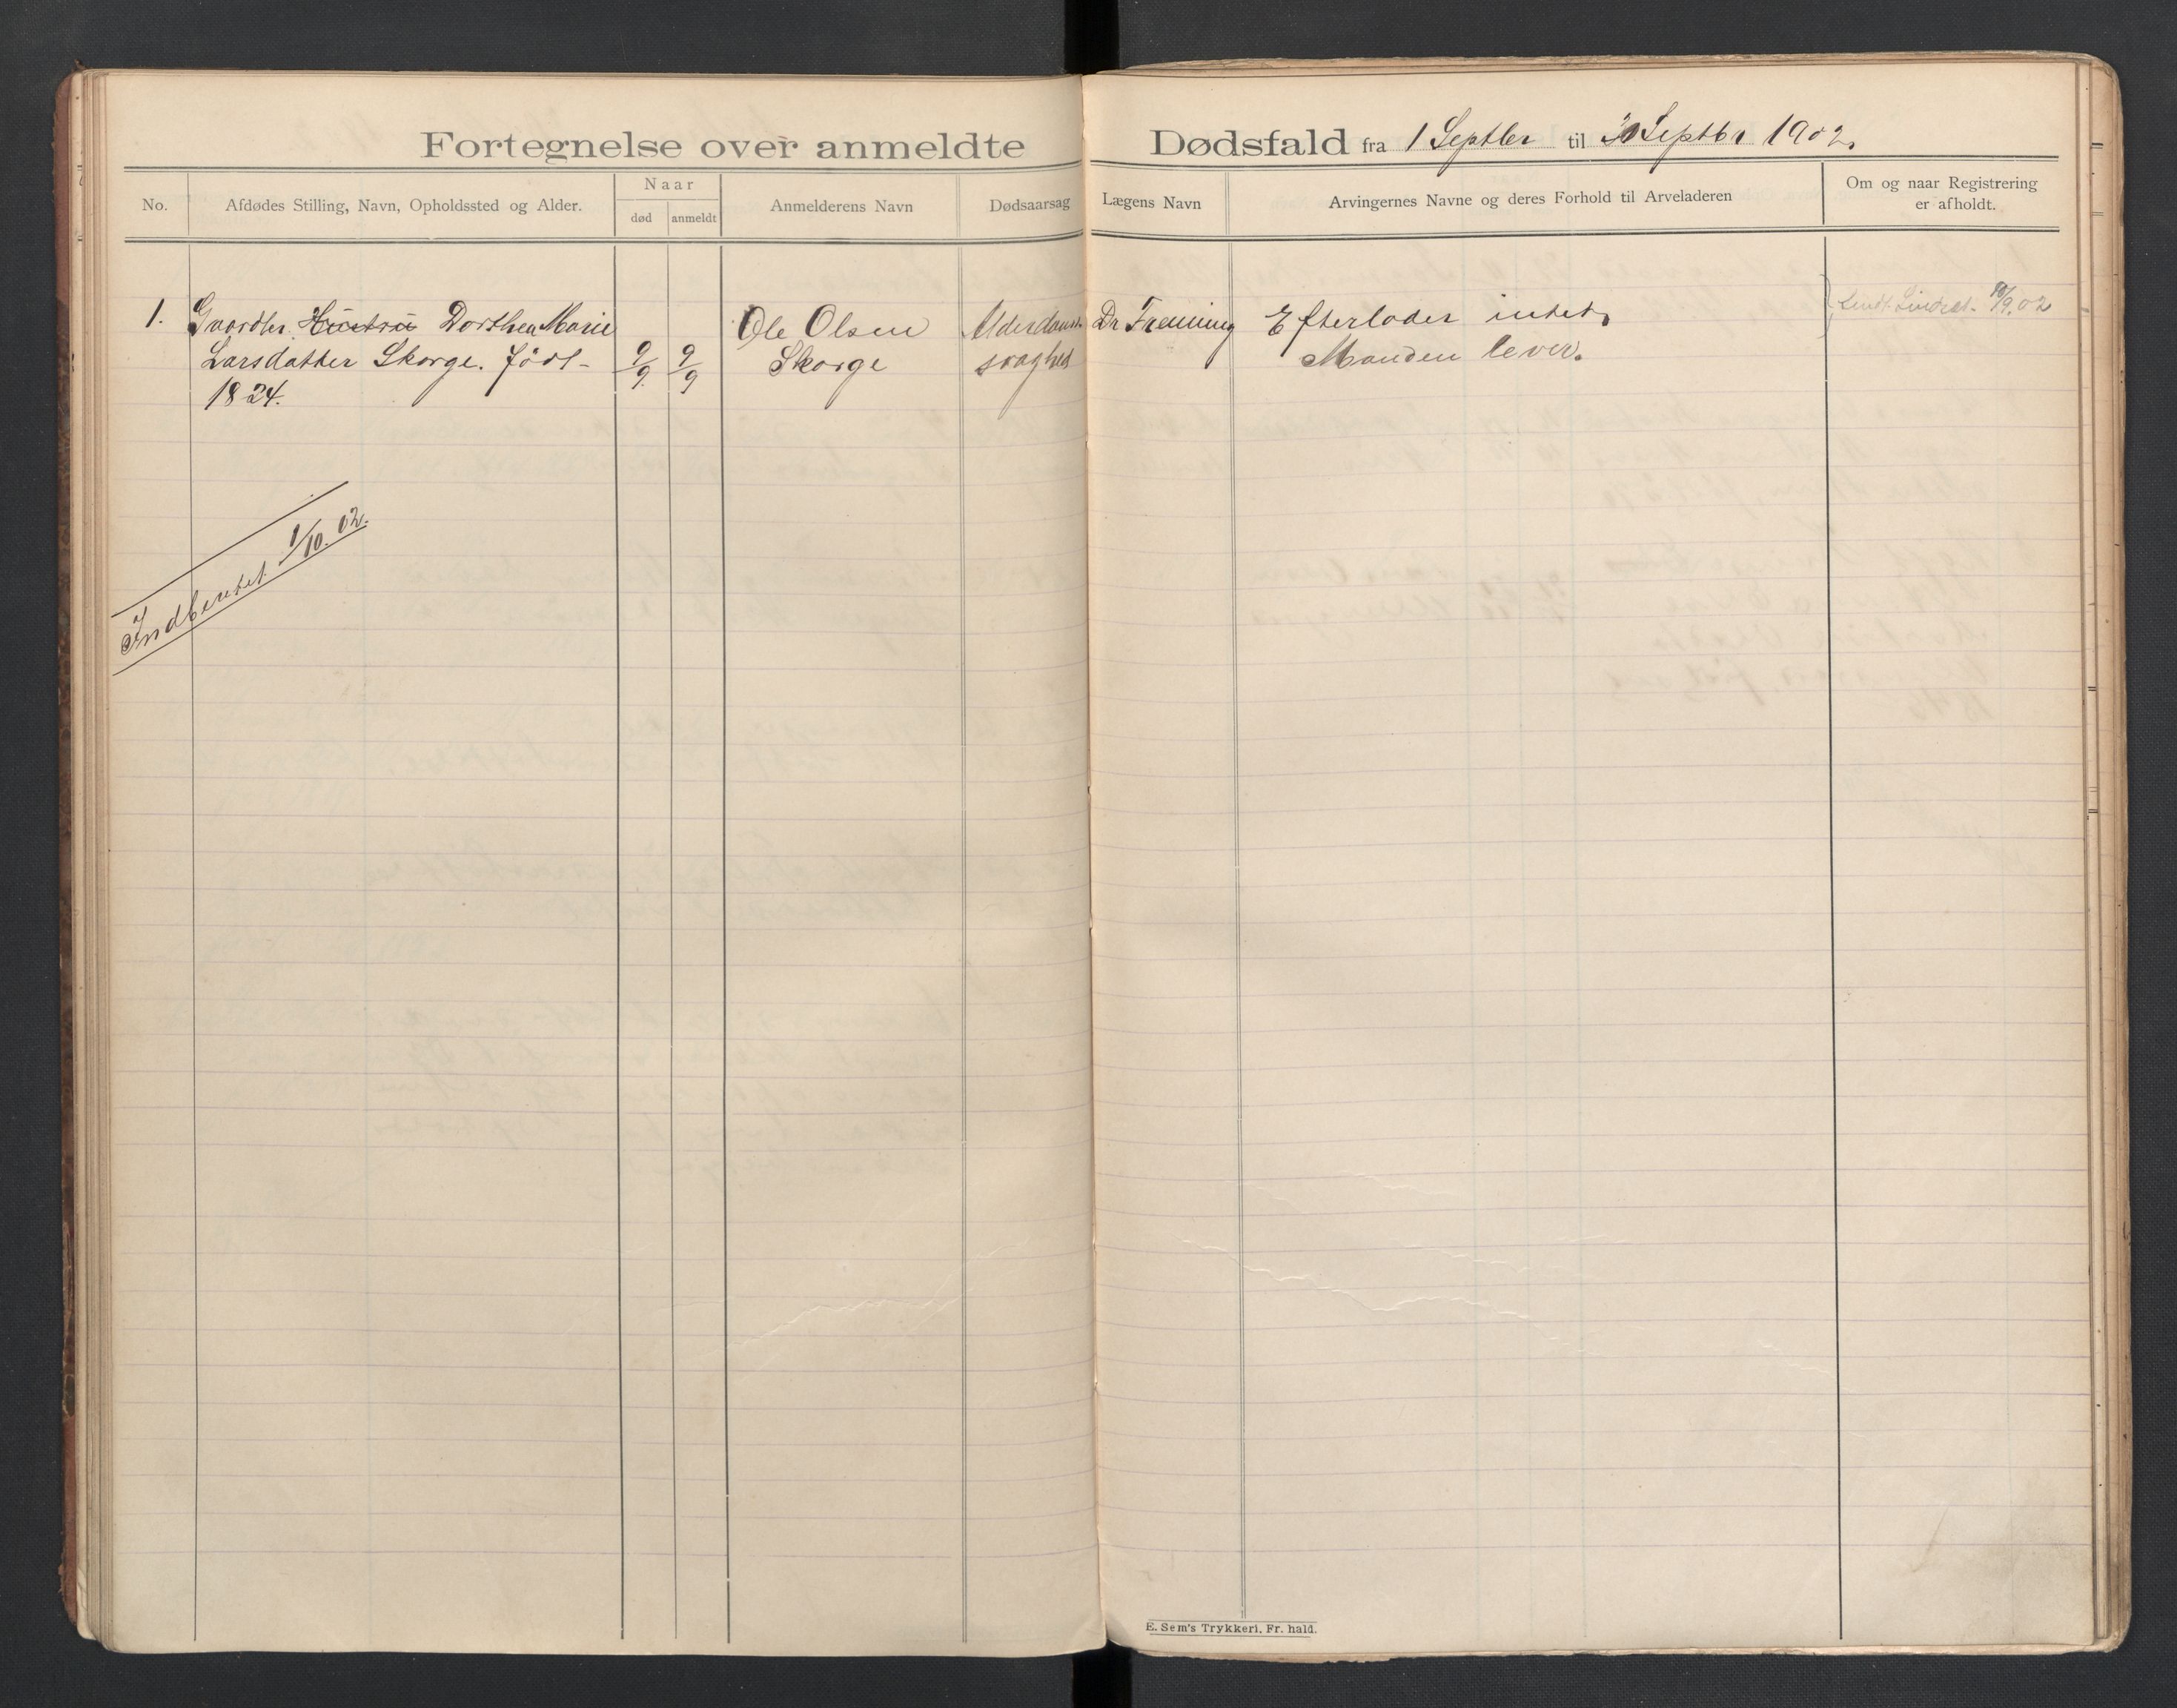 Fortegnelse over anmeldte Dødsfald fra 1 Septbr til 30 Septbr 1902.
No.
Afdødes Stilling, Navn, Opholdssted og Alder.
Naar
død
anmeldt
Anmelderens Navn
Dødsaarsag
Lægens Navn
Arvingernes Navne og deres Forhold til Arveladeren
Om og naar Registrering
er afholdt.
1.
Gaardbr. Hustru Dorthea Marie
Larsdatter Skorge. Født
1824.
9/9.
9/9
Ole Olsen
Skorge
Alderdoms
svaghed
Dr
Efterlader intet,
Manden lever.
Sendt 10/9.02
Indberettet 1/10.02.
E. Sem's Trykkeri, Fr. hald.